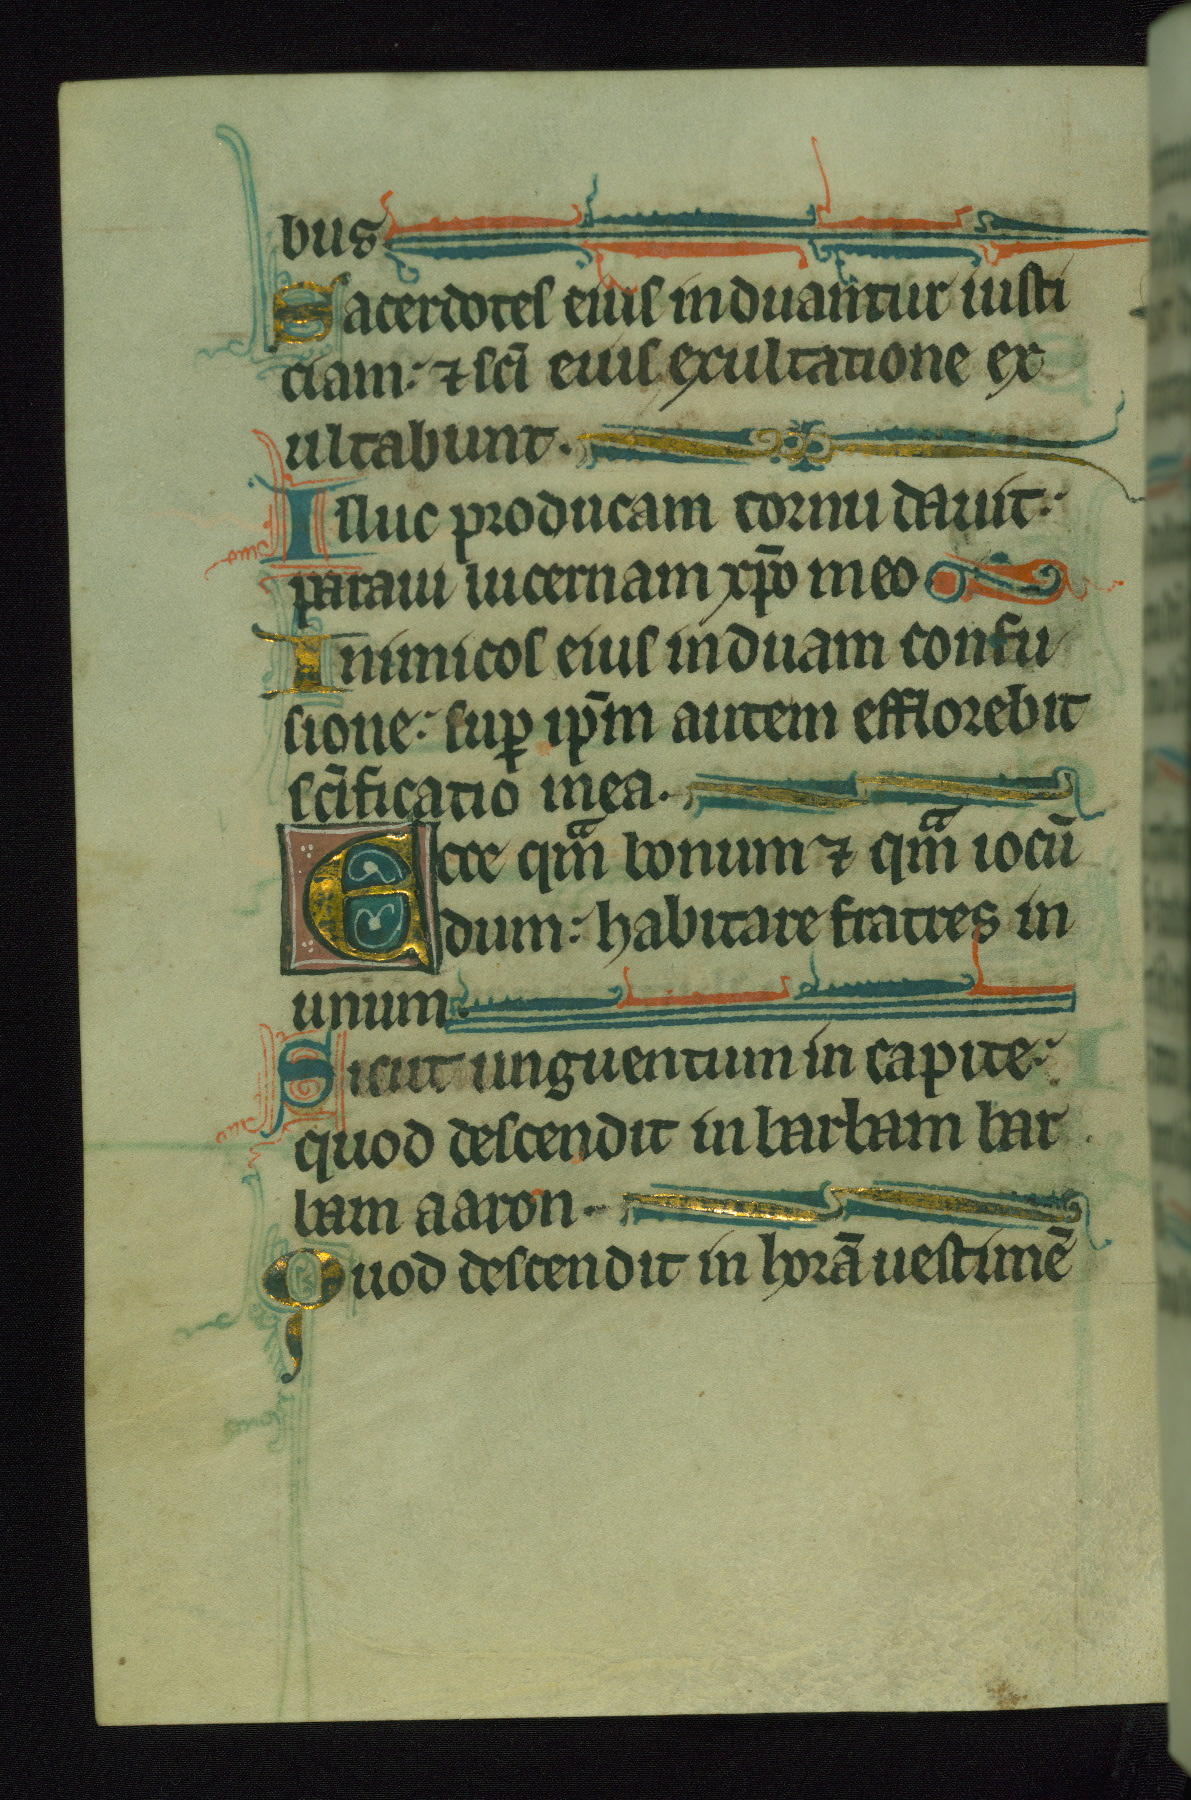 bus
Sacerdotes eius induantur iusti
ciam: ⁊ sc̄i eius exultatione ex
ultabunt.
Illuc producam cornu dauit:
paraui lucernam xp̄o meo
Inimicos eius induam confu
sione: sup̱ ip̄m autem efflorebit
sc̄ificatio mea.
Ecce qm̄ bonum ⁊ qm̄ iocū
dum: habitare fratres in
unum.
Sicut unguentum in capite:
quod descendit in barbam bar
bam aaron.
Quod descendit in horā uestimē